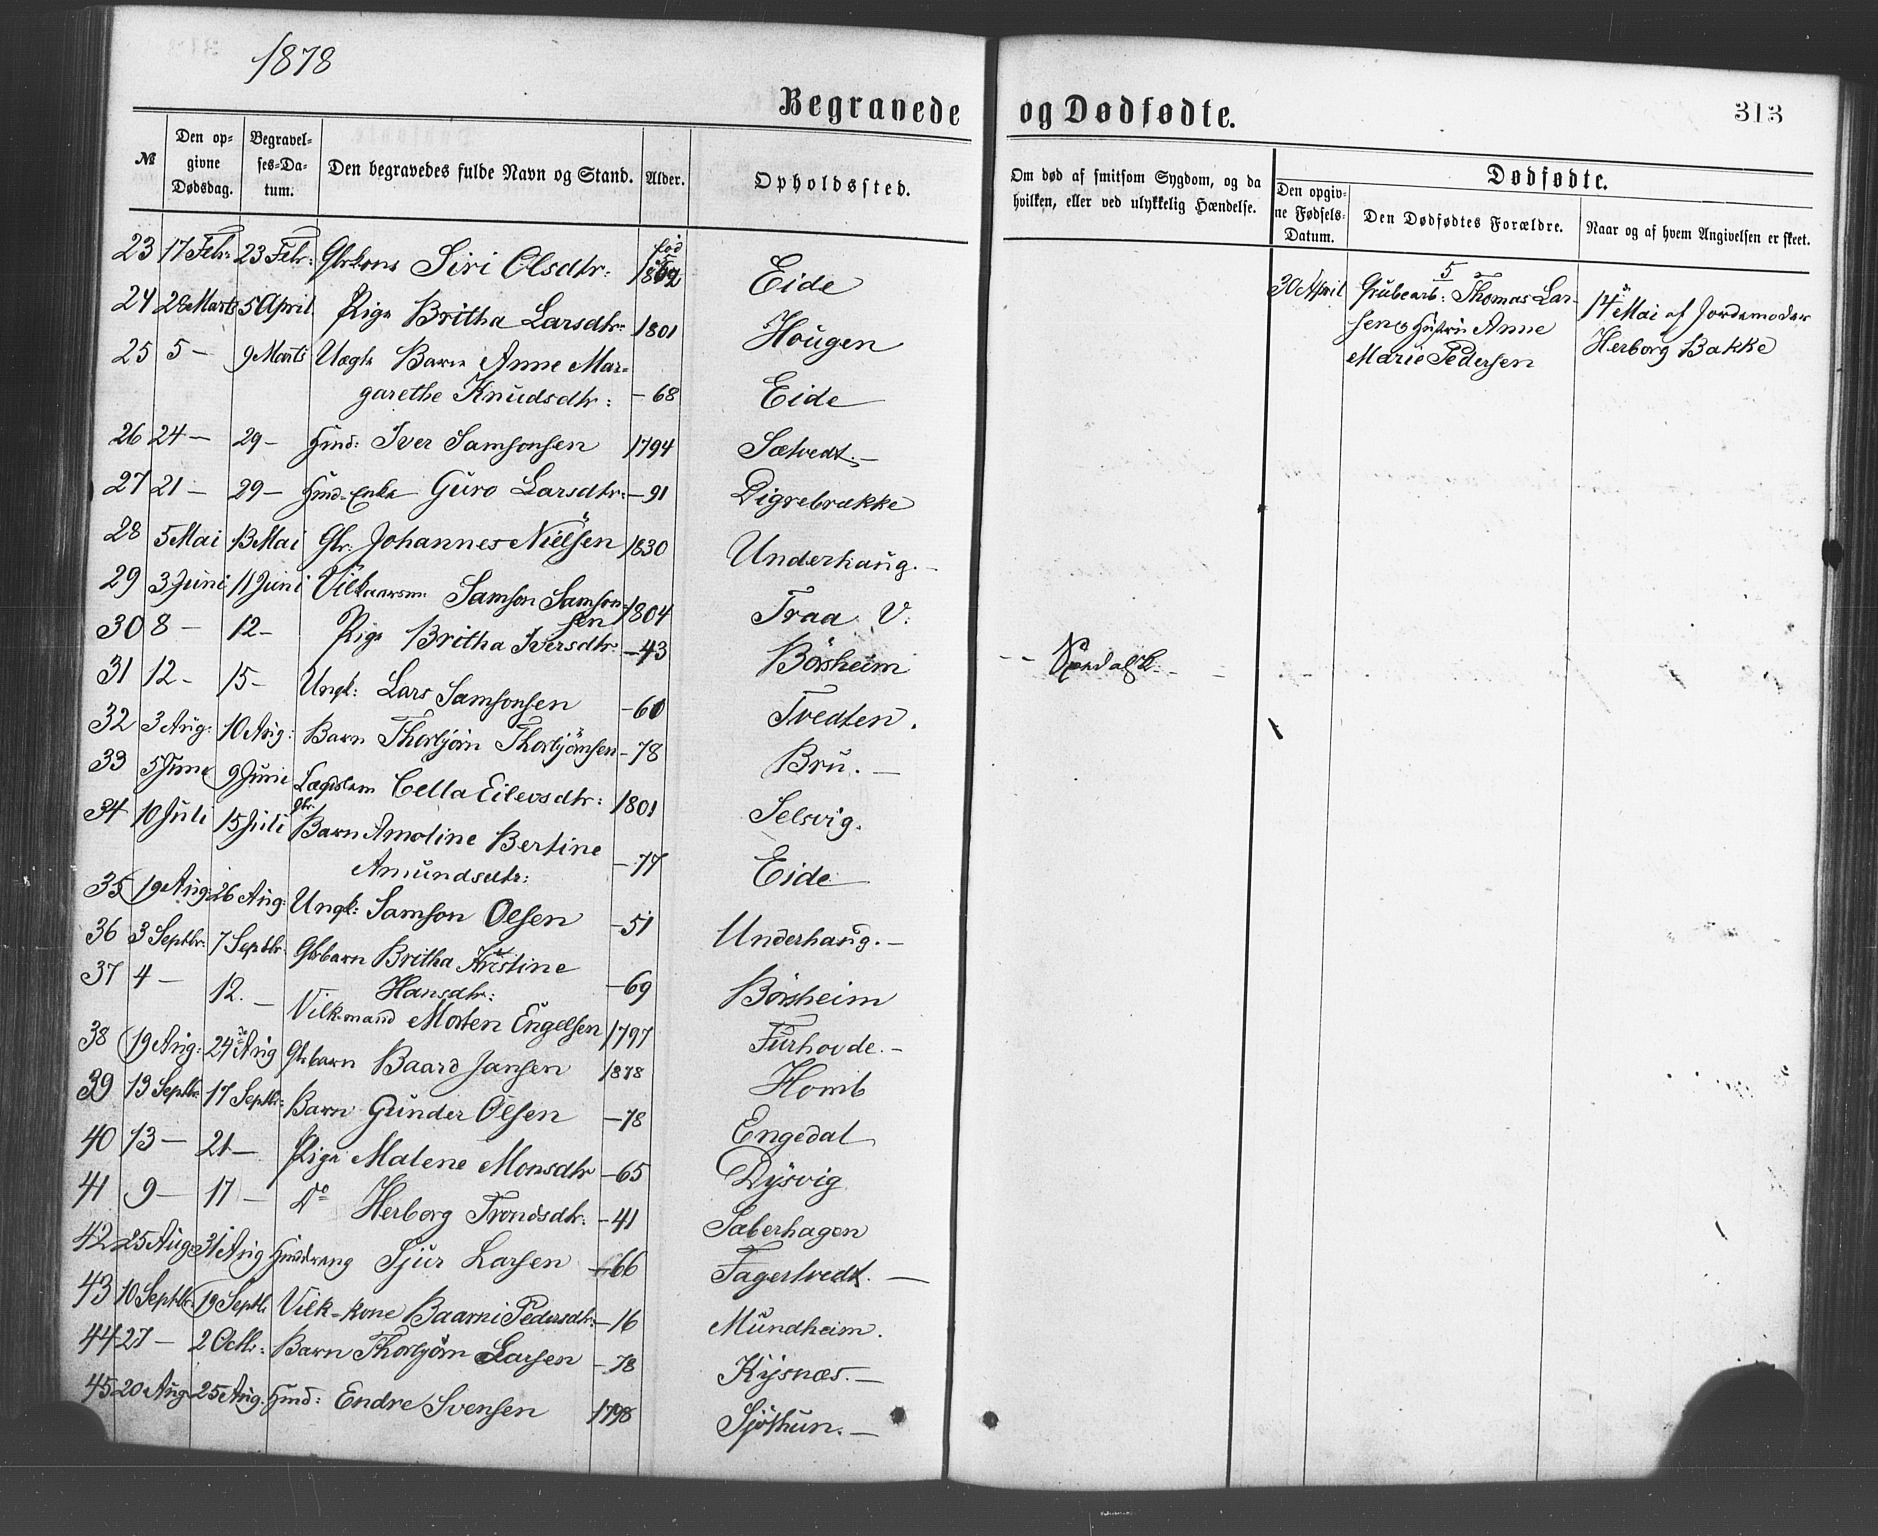 1878
Begravede og Dødfødte.
313
№ Den opgivne Dødsdag. Begravelses-Datum. Den begravedes fulde Navn og Stand. Alder. Opholdssted. Om død af smitsom Sygdom, og da hvilken, eller ved ulykkelig Hændelse.
Dødfødte.
Den opgivne Fødsels-Datum. Den Dødfødtes Forældre. Naar og af hvem Angivelsen er skeet.
23 17 Febr: 23 Febr: Gbrkons Siri Olsdtr: Eide
24 28 Marts 5 April Pige Britha Larsdtr: 1801 Hougen
25 5 — 9 Marts Uægte Barn Anne Mar=
garethe Knudsdtr: — 68 Eide
26 24 — 29 — Hmd: Iver Samsonsen 1794 Sætvedt. —
27 21 — 29 — Hmd-Enke Guro Larsdtr: — 91 Digrebrække
28 5 Mai 13 Mai Gbr: Johannes Nielsen 1830 Underhaug. —
29 3 Juni 11 Juni Vilkaarsm: Samson Samson=
sen 1804 Traa V:
30 8 — 12 — Pige Britha Iversdtr: — 43 Börsheim
31 12 — 15 — Ungk: Lars Samsonsen — 60 Tvedten.
32 3 Aug: 10 Aug: Barn Thorbjörn Thorbjörnsen — 78 Bru. —
33 5 Juni 9 Juni Lægdslem Cella Eilevsdtr: 1801 Selsvig.
34 10 Juli 15 Juli Gbr. Barn Amoline Bertine
Amundsdtr: — 77 Eide
35 19 Aug: 26 Aug: Ungk: Samson Olsen — 51 Underhaug. —
36 3 Septbr: 7 Septbr: Gbrbarn Britha Kristine
Hansdtr: — 69 Börsheim
37 4 — 12. — Vilk-mand Morten Engelsen 1797 Furhovde. —
38 19 Aug: 24 Aug Gbrbarn Baard Jansen 1878 Homb
39 13 Septbr 17 Septbr: Barn Gunder Olsen — 78 Engedal
40 13 — 21 — Pige Malene Monsdtr — 65 Dysvig
41 9 — 17 — Do Herborg Trondsdtr: — 41 Saberhagen
42 25 Aug 31 Aug Hmddreng Sjur Larsen — 66 Fagertvedt. —
43 10 Septbr: 19 Septb: Vilk-kone Baarni Pedersdtr: — 16 Mundheim.
44 27 — 2 Octb: Barn Thorbjörn Larsen — 78 Kysnæs. —
45 20 Aug 25 Aug. Hmd: Endre Svensen 1798 Sjöthun. —
30 April Grubearb: Thomas Lar-
sen og Hustru Anne
Marie Pedersen
14 Mai af Jordemoder
Herborg Bakke